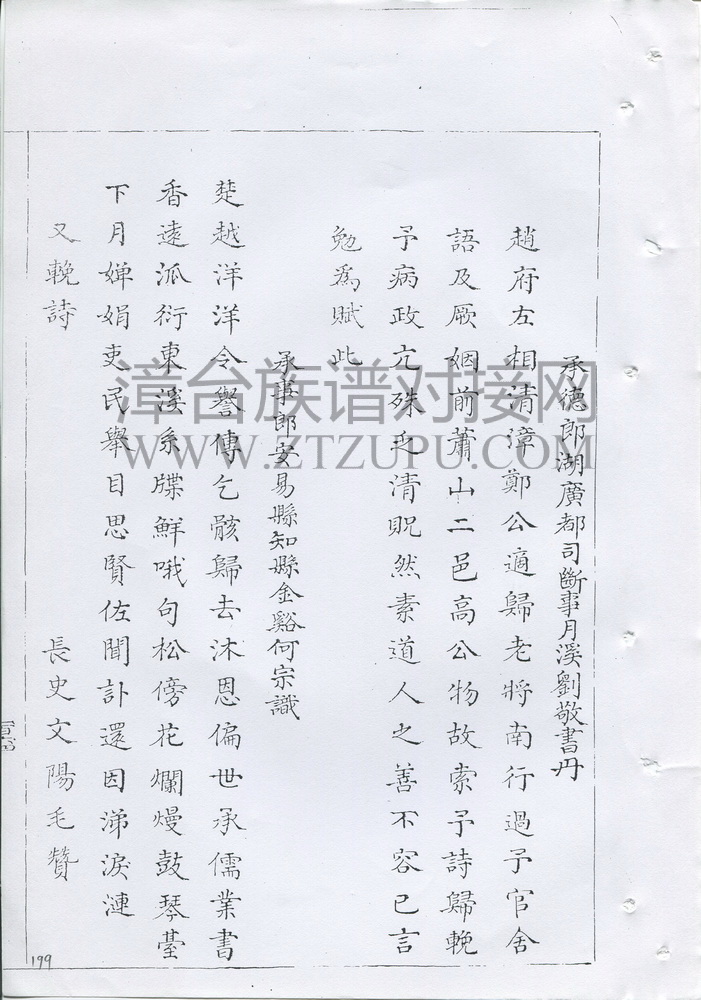 承德郎湖廣都司斷事月溪劉敬書丹
趙府左相清漳鄭公適歸老將南行過予官舍
語及厥姻前蕭山二邑高公物故索予詩歸輓
予病政冗殊乏清貺然素道人之善不容已言
勉為賦此
承事郎安易縣知縣金谿何宗識
楚越洋洋令譽傳乞骸歸去沐恩偏世承儒業書
香遠派衍東溪系牒鮮哦句松傍花爛熳鼓琴臺
下月嬋娟吏民舉目思賢佐聞訃還因涕淚漣
又輓詩
長史文陽毛贊
199
漳台族谱对接网
WWW.ZTZUPU.COM